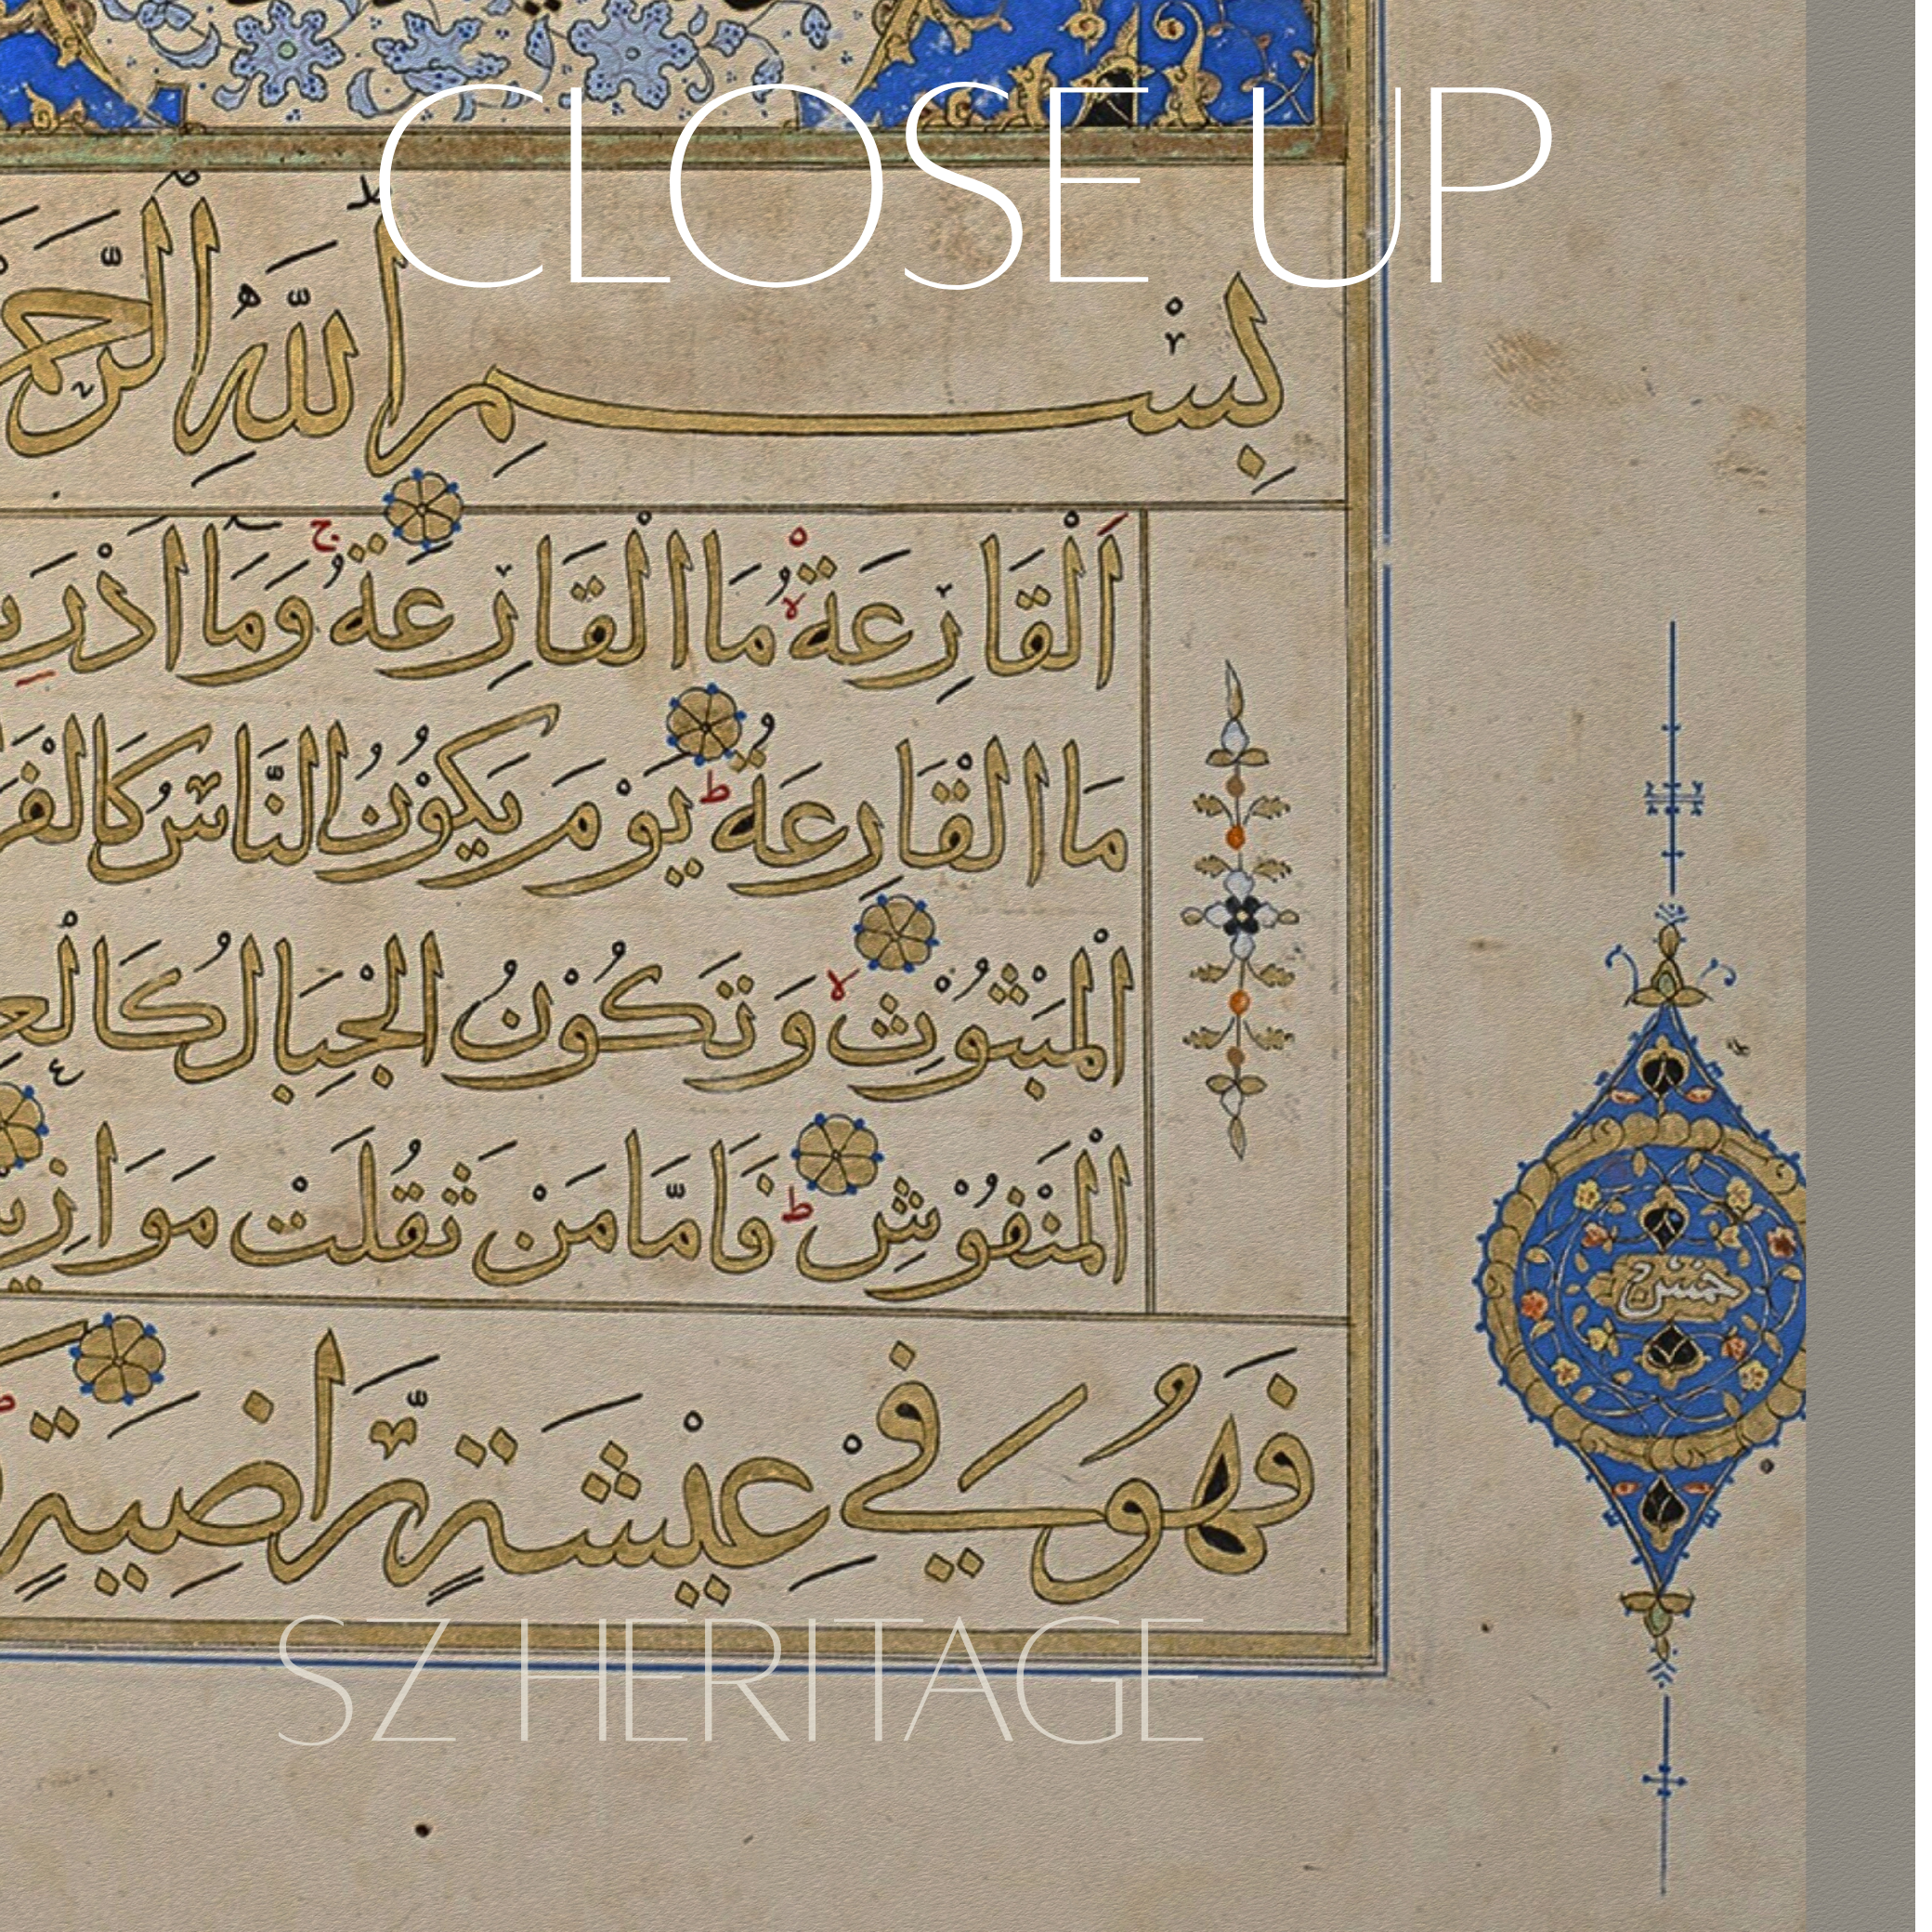 CLOSE UP
بِسْمِ اللّٰهِ الرَّحْمَ
اَلْقَارِعَةُ مَا الْقَارِعَةُ وَمَا اَدْرٰ
مَا الْقَارِعَةُ يَوْمَ يَكُوْنُ النَّاسُ كَالْفَرَ
الْمَبْثُوْثِ وَتَكُوْنُ الْجِبَالُ كَالْعِ
الْمَنْفُوْشِ فَاَمَّا مَنْ ثَقُلَتْ مَوَازِيْ
فَهُوَ فِيْ عِيْشَةٍ رَّاضِيَةٍ
SZ HERITAGE